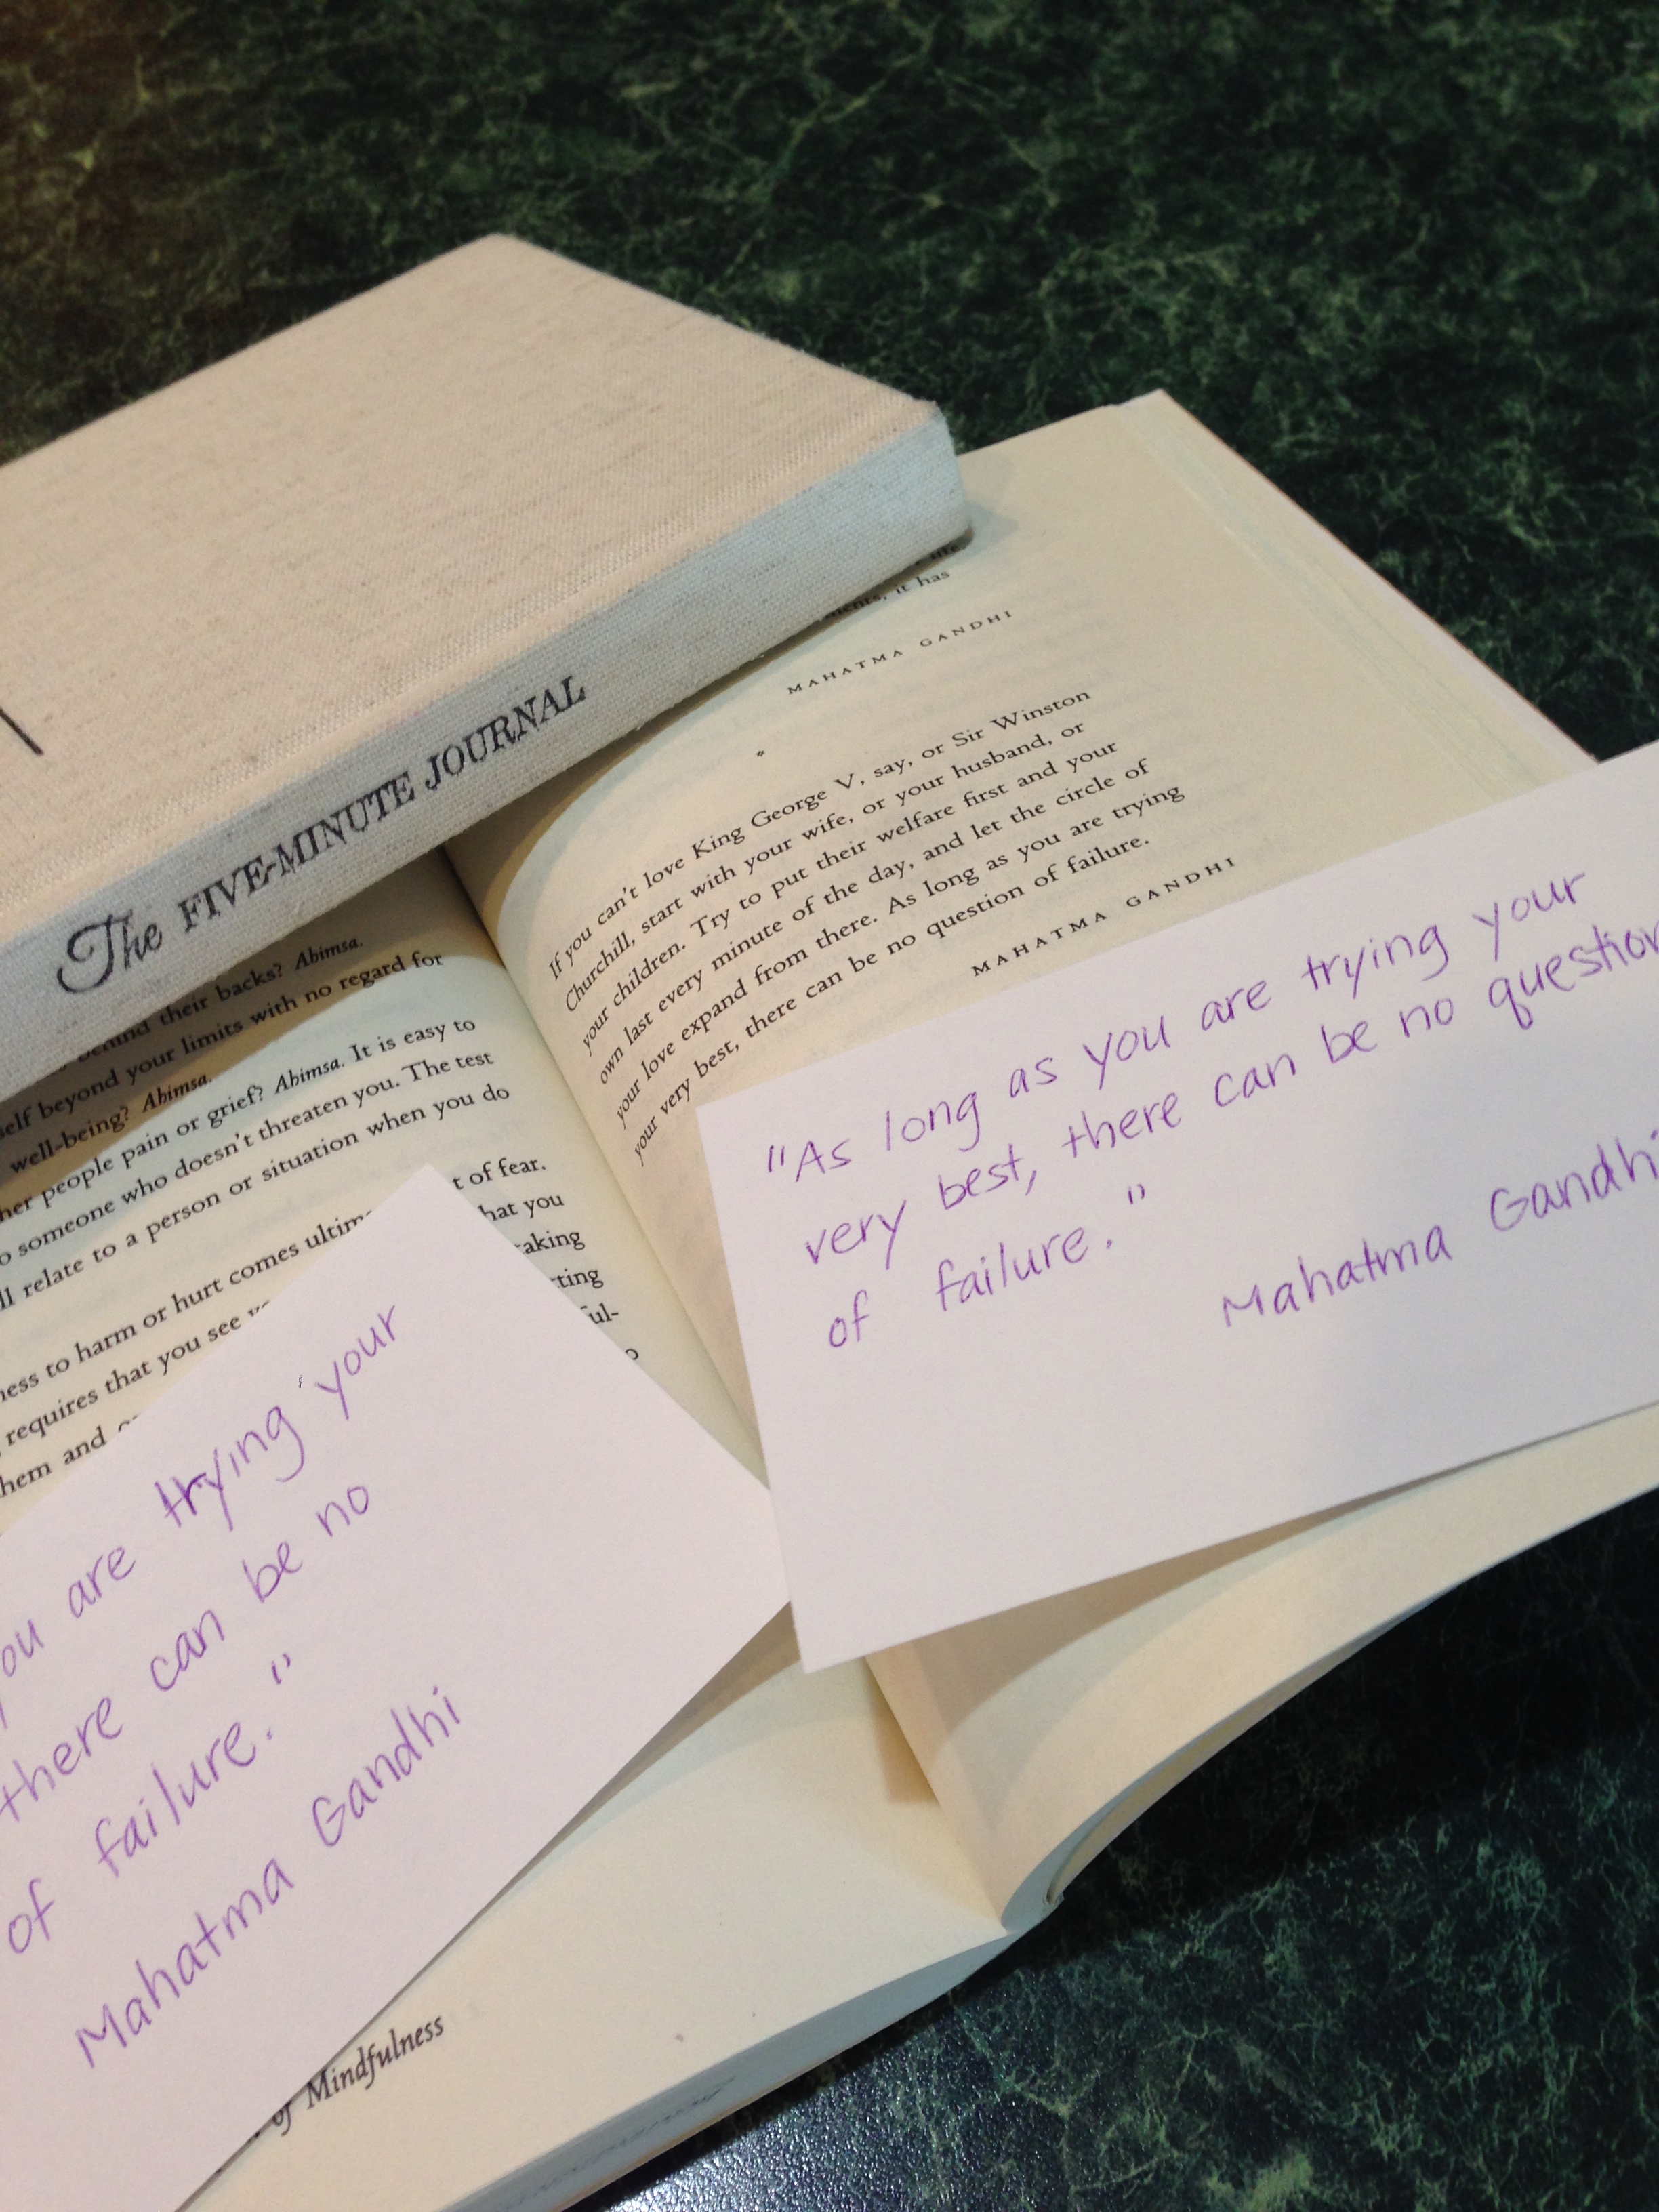 The FIVE-MINUTE JOURNAL
it has
MAHATMA GANDHI
*
If you can't love King George V, say, or Sir Winston
Churchill, start with your wife, or your husband, or
your children. Try to put their welfare first and your
own last every minute of the day, and let the circle of
your love expand from there. As long as you are trying
your very best, there can be no question of failure.
MAHATMA GANDHI
behind their backs? Abimsa.
self beyond your limits with no regard for
well-being? Abimsa.
her people pain or grief? Abimsa. It is easy to
o someone who doesn't threaten you. The test
ll relate to a person or situation when you do
t of fear.
ness to harm or hurt comes ultim
hat you
requires that you see
taking
hem and
"As long as you are trying your
very best, there can be no question
of failure."
Mahatma Gandhi
you are trying your
there can be no
of failure."
Mahatma Gandhi
of Mindfulness